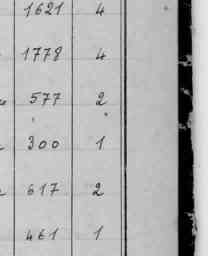 1621 4
1778 4
577 2
300 1
617 2
461 1